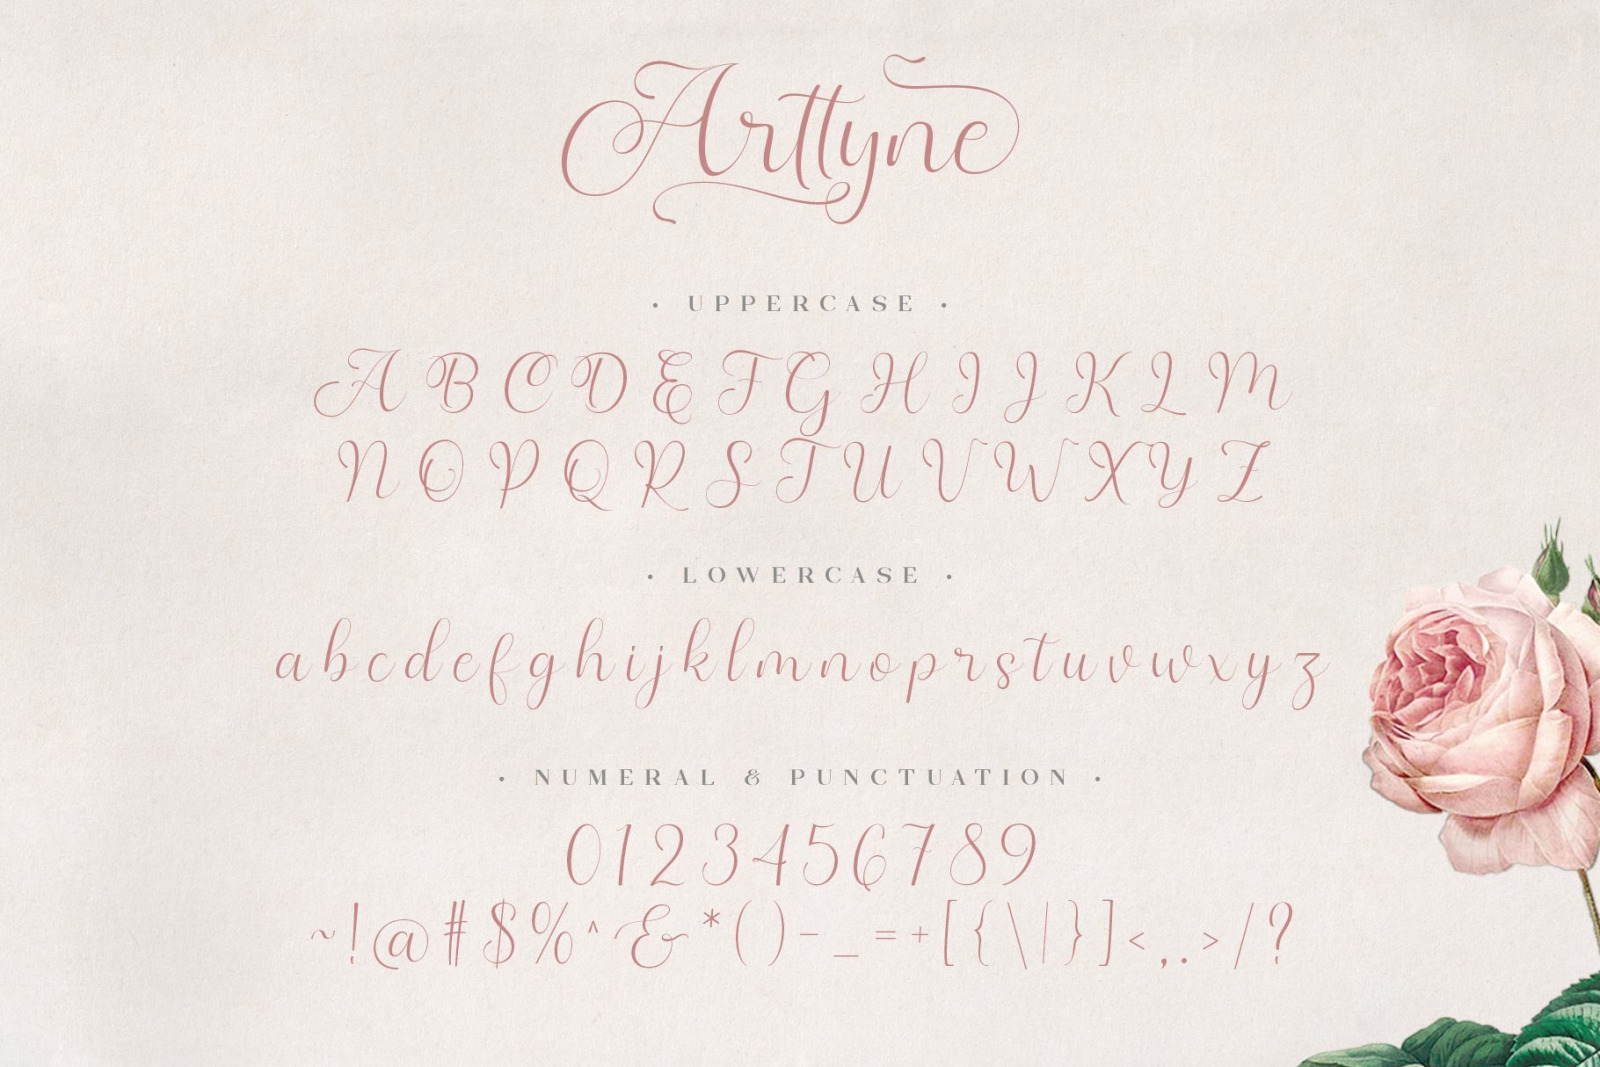 Arttyne
• UPPERCASE •
A B C D E F G H I J K L M
N O P Q R S T U V W X Y Z
• LOWERCASE •
a b c d e f g h i j k l m n o p r s t u v w x y z
• NUMERAL & PUNCTUATION •
0 1 2 3 4 5 6 7 8 9
~ ! @ # $ % ^ & * ( ) - _ = + [ { \ | } ] < , . > / ?